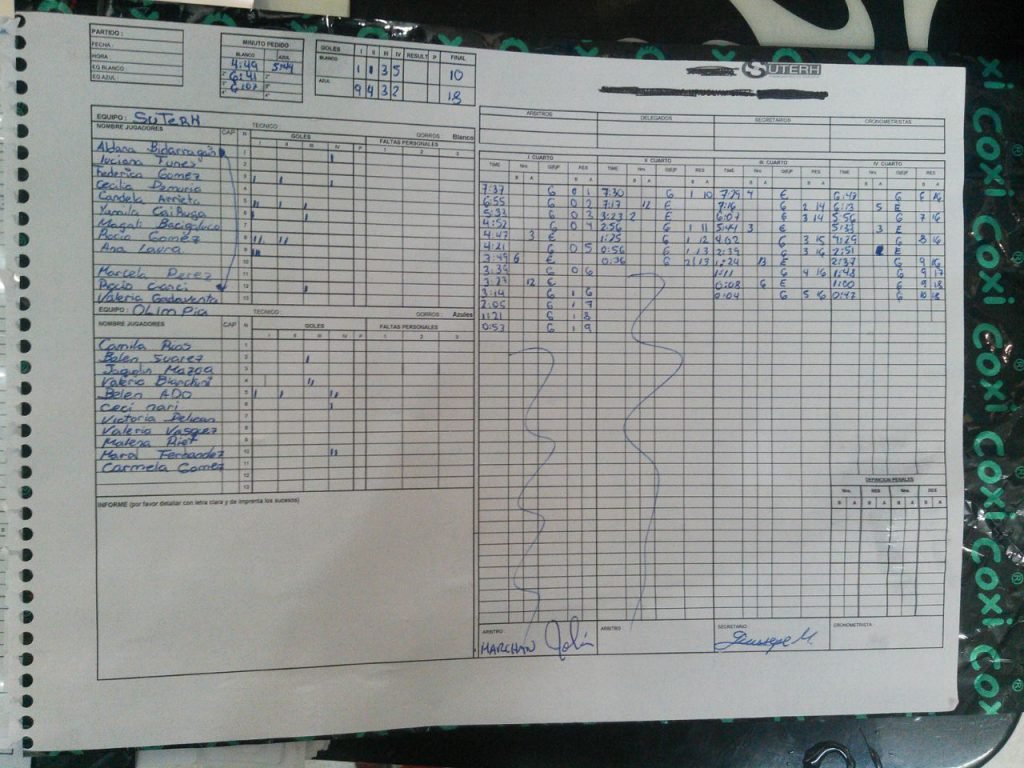 PARTIDO :
FECHA :
HORA
EQ.BLANCO
EQ.AZUL:
MINUTO PEDIDO
BLANCO AZUL
4:49 5:44
6:41
6:07
GOLES I II III IV RESULT P FINAL
BLANCO 1 1 3 5 10
AZUL 9 4 3 2 18
SUTERH
EQUIPO : SUTERH TECNICO GORROS Blanco
NOMBRE JUGADORES CAP N GOLES FALTAS PERSONALES
I II III IV P 1 2 3
Aldana Bidarragan 1
Luciana Funes 2
Federica Gomez 3
Cecilia 4
Candela Arrieta 5
Yamila 6
Magali Bacigaluco 7
Rocio Gomez 8
Ana Laura 9
10
Marcela Perez 11
Rocio 12
Valeria 13
EQUIPO : OLIMPIA TECNICO GORROS Azules
NOMBRE JUGADORES CAP N GOLES FALTAS PERSONALES
I II III IV P 1 2 3
Camila Rios 1
Belen Suarez 2
Jaquelin Mazza 3
Valeria Bianchini 4
Belen ADO 5
Ceci nari 6
Victoria Delican 7
Valeria Vasquez 8
Malena Riet 9
Maral Fernandez 10
Carmela Gomez 11
12
13
INFORME (por favor detallar con letra clara y de imprenta los sucesos)
ARBITROS DELEGADOS SECRETARIOS CRONOMETRISTAS
I CUARTO II CUARTO III CUARTO IV CUARTO
TIME Nro. G/E/P RES TIME Nro. G/E/P RES TIME Nro. G/E/P RES TIME Nro. G/E/P RES
B A B A B A B A B A B A B A B A
7:37 G 0 1 7:30 G 1 10 7:29 4 E 6:47 G 6 16
6:55 G 0 2 7:17 12 E 7:16 G 2 14 6:13 5 E
5:32 G 0 3 3:23 2 E 6:07 G 3 14 5:56 G 7 16
4:52 G 0 4 2:56 G 1 11 5:44 3 E 5:33 3 E
4:47 3 E 1:25 G 1 12 4:02 G 3 15 4:29 G 8 16
4:21 G 0 5 0:56 G 1 13 2:39 G 3 16 2:51 E
3:49 6 E 0:36 G 2 13 1:24 13 E 2:37 G 9 16
3:39 G 0 6 1:11 G 4 16 1:48 G 9 17
3:27 12 E 0:08 6 E 1:00 G 9 18
3:14 G 1 6 0:04 G 5 16 0:47 G 10 18
2:05 G 1 7
1:21 G 1 8
0:53 G 1 9
DEFINICION PENALES
Nro. RES Nro. RES
B A B A B A B A
ARBITRO ARBITRO SECRETARIO CRONOMETRISTA
MARCHAN
Coxi
Coxi
Coxi
Coxi
Coxi